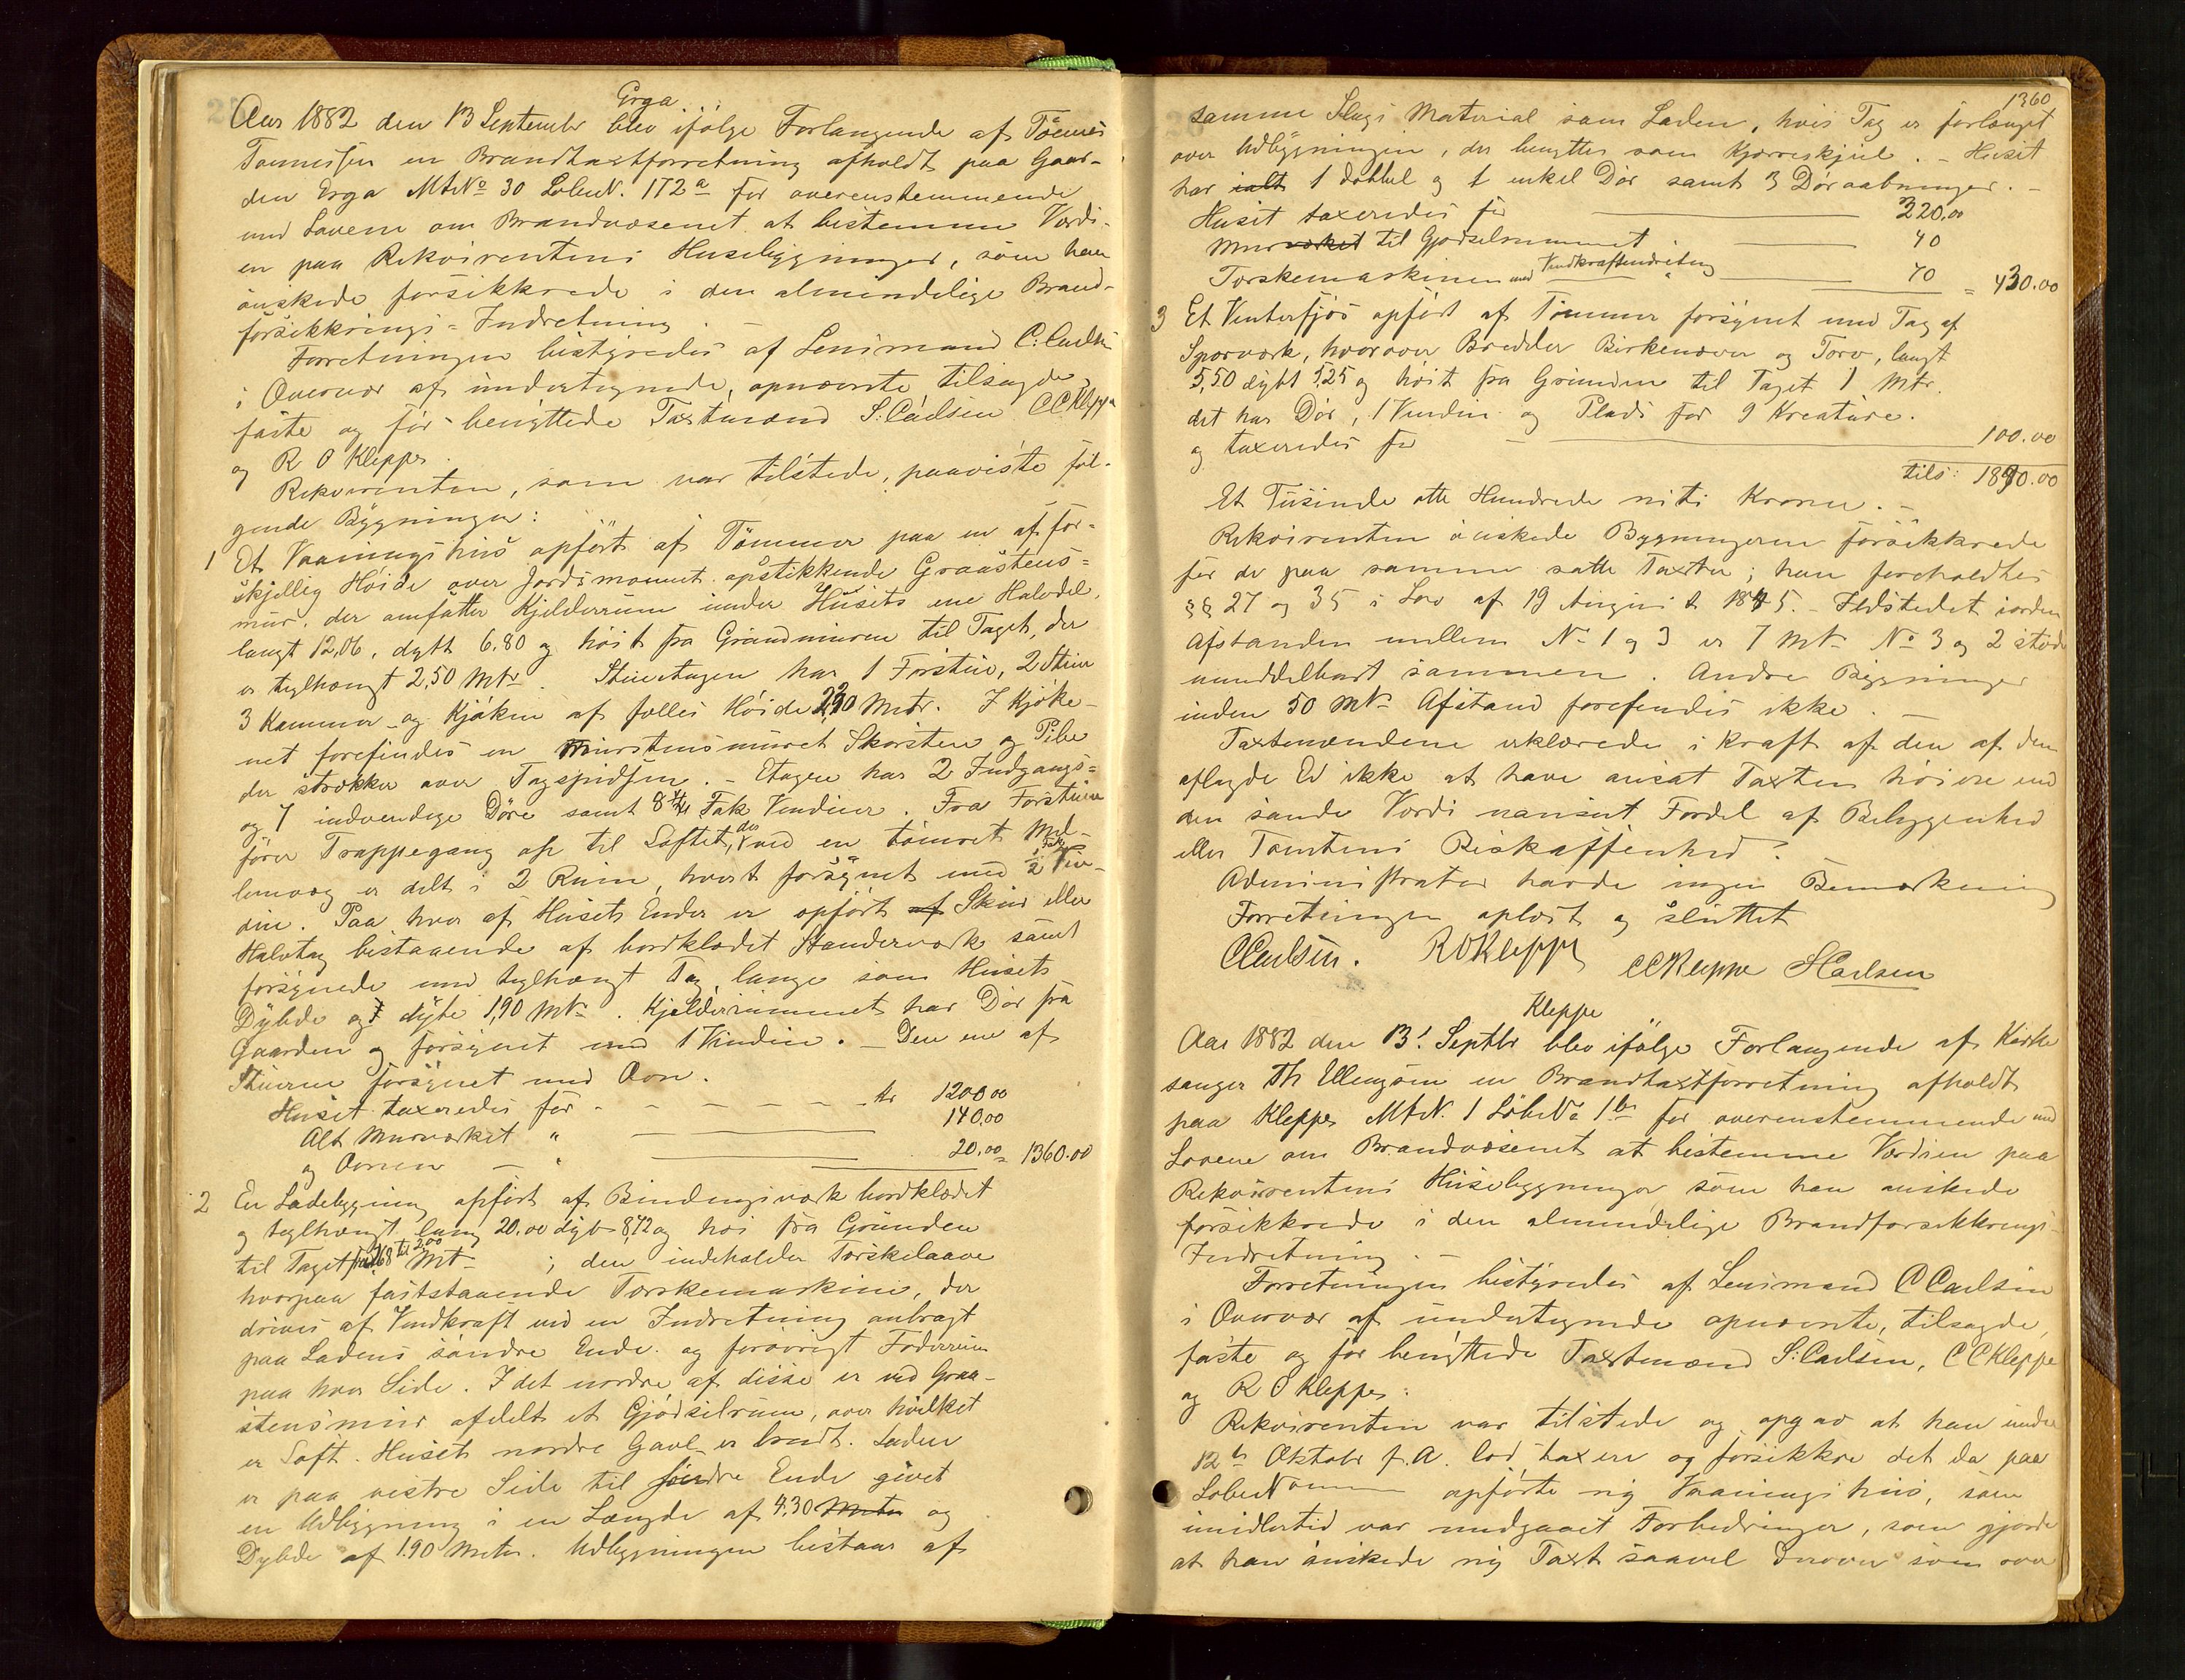 Erga
Aar 1882 den 13 Septembr blev ifølge Forlangende af Tönnes
Tønnessen en Brandtaxtforretning afholdt paa Gaar-
den Erga MtrNo 30 LøbeN. 172a for overensstemmende
med Lovene om Brandvæsenet at bestemme Værdi-
en paa Rekvirentens Huusbygninger, som han
ønskede forsikkrede i den almindelige Brand-
forsikkrings-Indretning. –
Forretningen bestyredes af Lensmand C. Carlsen
i Overvær af undertegnede, opnævnte tilsagde,
faste og før benyttede Taxtmænd S. Carlsen CC Kleppe
og R O Kleppe.
Rekvirenten, som var tilstede, paaviste føl-
gende Bygninger:
1 Et Vaaningshus opført af Tömmer paa en af for-
skjellig Høide over Jordsmonnet opstikkende Graastens-
mur, der omfatter Kjelderrum under Husets ene Halvdel,
langt 12,06, dybt 6,80 og høit fra Grundmuren til Taget, der
er teglhængt 2,50 Mtr. Stueetagen har 1 Forstue, 2 Stuer
3 Kammer og Kjøken af fælles Høide 2,20 Mtr. I Kjøke-
net forefindes en Murstensmuret Skorsten og Pibe
der strækker over Tagspidsen. – Etagen har 2 Indgangs-
og 7 indvendige Døre samt 8 4/4 Fak Vinduer. Fra Forstuen
fører Trappegang op til Loftet, der ved en tömret Mel-
lemvæg er delt i 2 Rum, hvert forsynet med 1/2 Fak Vin-
due. Paa hver af Husets Ender er opført af Skur eller
Halvtag bestaaende af bordklædet Standerværk samt
forsynede med teglhængt Tag, lange som Husets
Dybde og dybe 1,90 Mtr. Kjelderrummet har Dør fra
Gaarden og forsynet med 1 Vindue. – Den ene af
Stuerne forsynet med Ovn.
Huset taxeredes for – – – – – – Kr 1200.00
Alt Murværket " 140.00
og Ovnen – " 20.00 = 1360.00
2 En Ladebygning opført af Bindingsværk bordklædet
og teglhængt lang 20.00 dyb 8,72 og høi fra Grunden
til Taget fra 2.68 til 2.00 Mtr ; den indeholder Tærskelaave
hvorpaa faststaaende Tærskemaskine, der
drives af Vindkraft ved en Indretning anbragt
paa Ladens søndre Ende og forøvrigt Foderrum
paa hver Side. I det nordre af disse er ved Graa-
stensmur afdelt et Gjødselrum, over hvilket
er Loft. Husets nordre Gavl er bredt. Laden
er paa vestre Side til søndre Ende givet
en Udbygning i en Længde af 4.30 Meter og
Dybde af 1.90 Meter. Udbygningen bestaar af
1360
samme Slags Material som Laden, hvis Tag er forlænget
over Udbygningen, der benyttes som Kjærreskjul. – Huset
har ialt 1 dobbel og 1 enkel Dør samt 3 Døraabninger. –
Huset taxeredes for 320.00
Murværket til Gjødselrummet " 40
Tærskemaskinen med Vindkraftindretning " 70 = 430.00
3 Et Vinterfjøs opført af Tømmer forsynet med Tag af
Sparværk, hvorover Bredder Birkenæver og Torv, langt
5,50 dybt 5,25 og høit fra Grunden til Taget 1 Mtr.
det har Dør, 1 Vindue og Plads for 9 Kreature.
og taxeredes for – 100.00
tils: 1890.00
Et Tusinde otte Hundrede niti Kroner. –
Rekvirenten ønskede Bygningerne forsikkrede
for de paa samme satte Taxter; han foreholdtes
§§ 27 og 35 i Lov af 19 August 1845. – Ildstedet iorden
Afstanden mellem No 1 og 3 er 7 Mtr No 3 og 2 støde
umiddelbart sammen. Andre Bygninger
inden 50 Mtr Afstand forefindes ikke. –
Taxtmændene erklærede i Kraft af den af dem
aflagde Ed ikke at have ansat Taxten høiere end
den sande Værdi uanseet Fordel af Beliggenhed
eller Tomtens Beskaffenhed.
Administrator havde ingen Bemærkning
Forretningen oplæst og sluttet
CCarlsen. ROKleppe CCKleppe SCarlsen
Kleppe
Aar 1882 den 13 Septbr blev ifølge Forlangende af Kirke
sanger Th Ellengsen en Brandtaxtforretning afholdt
paa Kleppe MtrN. 1 LøbeNo 1b for overensstemmende med
Lovene om Brandvæsenet at bestemme Værdien paa
Rekvirentens Husebygninger som han ønskede
forsikkrede i den almindelige Brandforsikkrings-
Indretning. –
Forretningen bestyredes af Lensmand C Carlsen
i Overvær af undertegnede opnævnte, tilsagde,
faste og før benyttede Taxtmænd S. Carlsen, C C Kleppe
og R O Kleppe.
Rekvirenten var tilstede og opgav at han under
12te Oktobr f. A. lod taxere og forsikkre det da paa
LøbeNommer opførte ny Vaaningshus, som
imidlertid var undgaaet Forbedringer, som gjorde
at han ønskede ny Taxt saavel derover som over